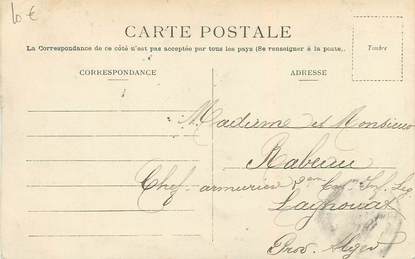 10 €
CARTE POSTALE
La Correspondance de ce côté n'est pas acceptée par tous les pays (Se renseigner à la poste.
Timbre
CORRESPONDANCE
ADRESSE
Madame et Monsieur
Rabeau
Chef armurier 2eme
Laghouat
Prov. Alger